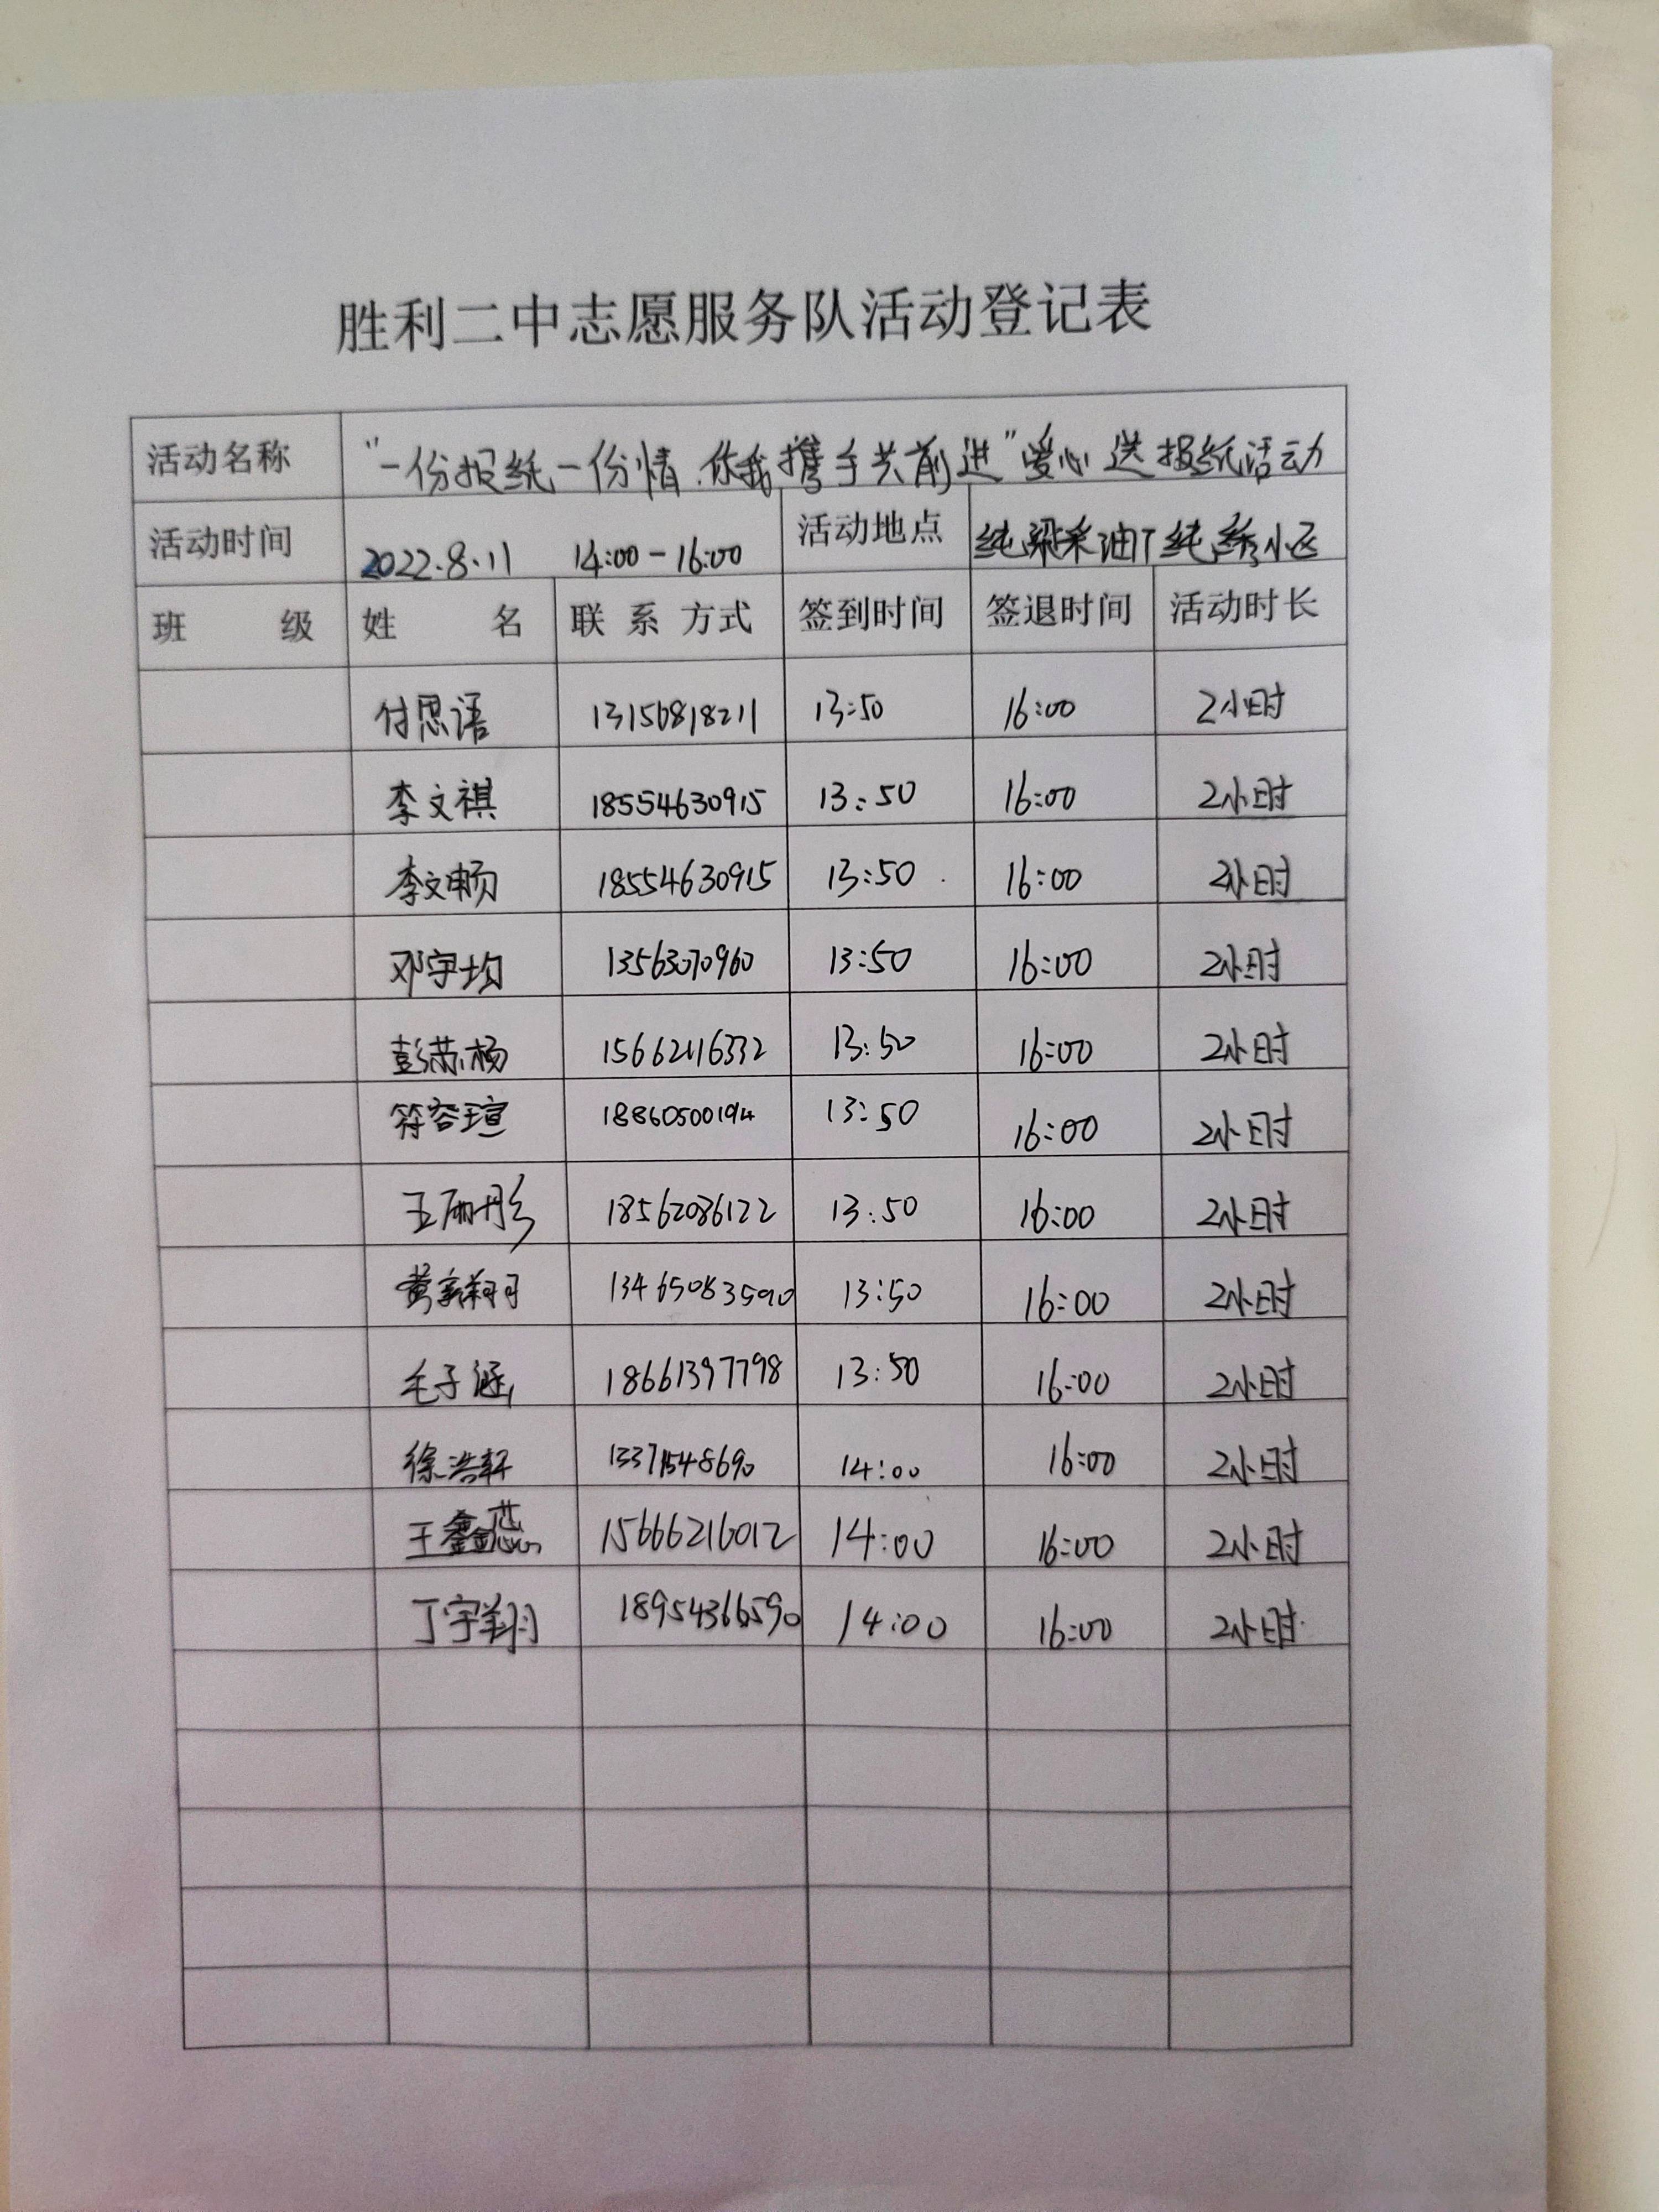 胜利二中志愿服务队活动登记表
活动名称 "一份报纸一份情,你我携手共前进"爱心送报纸活动
活动时间 2022.8.11 14:00-16:00 活动地点 纯梁采油厂纯秀小区
班 级 姓 名 联系方式 签到时间 签退时间 活动时长
付思语 13156818211 13:50 16:00 2小时
李文祺 18554630915 13:50 16:00 2小时
李文畅 18554630915 13:50 16:00 2小时
邓宇均 13563070960 13:50 16:00 2小时
彭苏杨 15662116332 13:50 16:00 2小时
符容瑄 18860500194 13:50 16:00 2小时
王丽彤 18562086122 13:50 16:00 2小时
13465083590 13:50 16:00 2小时
毛子涵 18661397798 13:50 16:00 2小时
徐浩轩 13371548690 14:00 16:00 2小时
王鑫蕊 15666216012 14:00 16:00 2小时
丁宇翔 18954366590 14:00 16:00 2小时